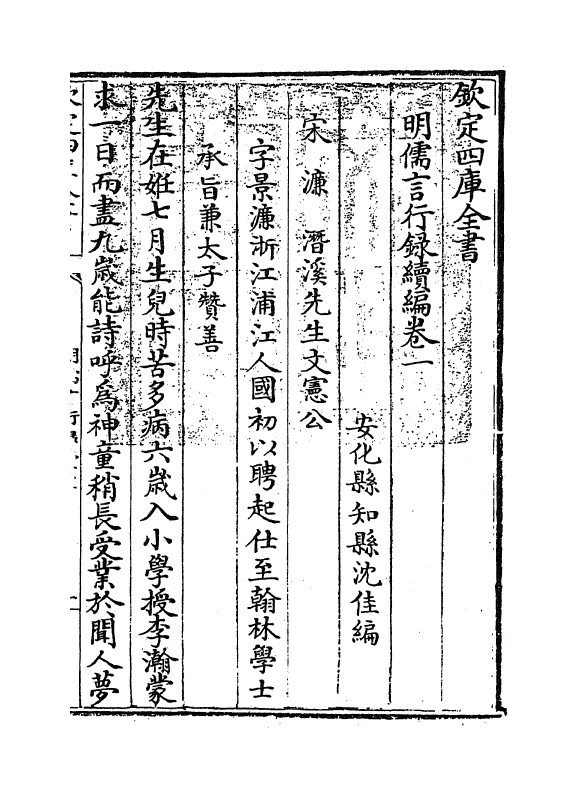 欽定四庫全書
明儒言行録續編卷一
安化縣知縣沈佳編
宋濂 潛溪先生文憲公
字景濂浙江浦江人國初以聘起仕至翰林學士
承旨兼太子贊善
先生在姙七月生兒時苦多病六歲入小學授李瀚蒙
求一日而盡九歲能詩呼為神童稍長受業於聞人夢